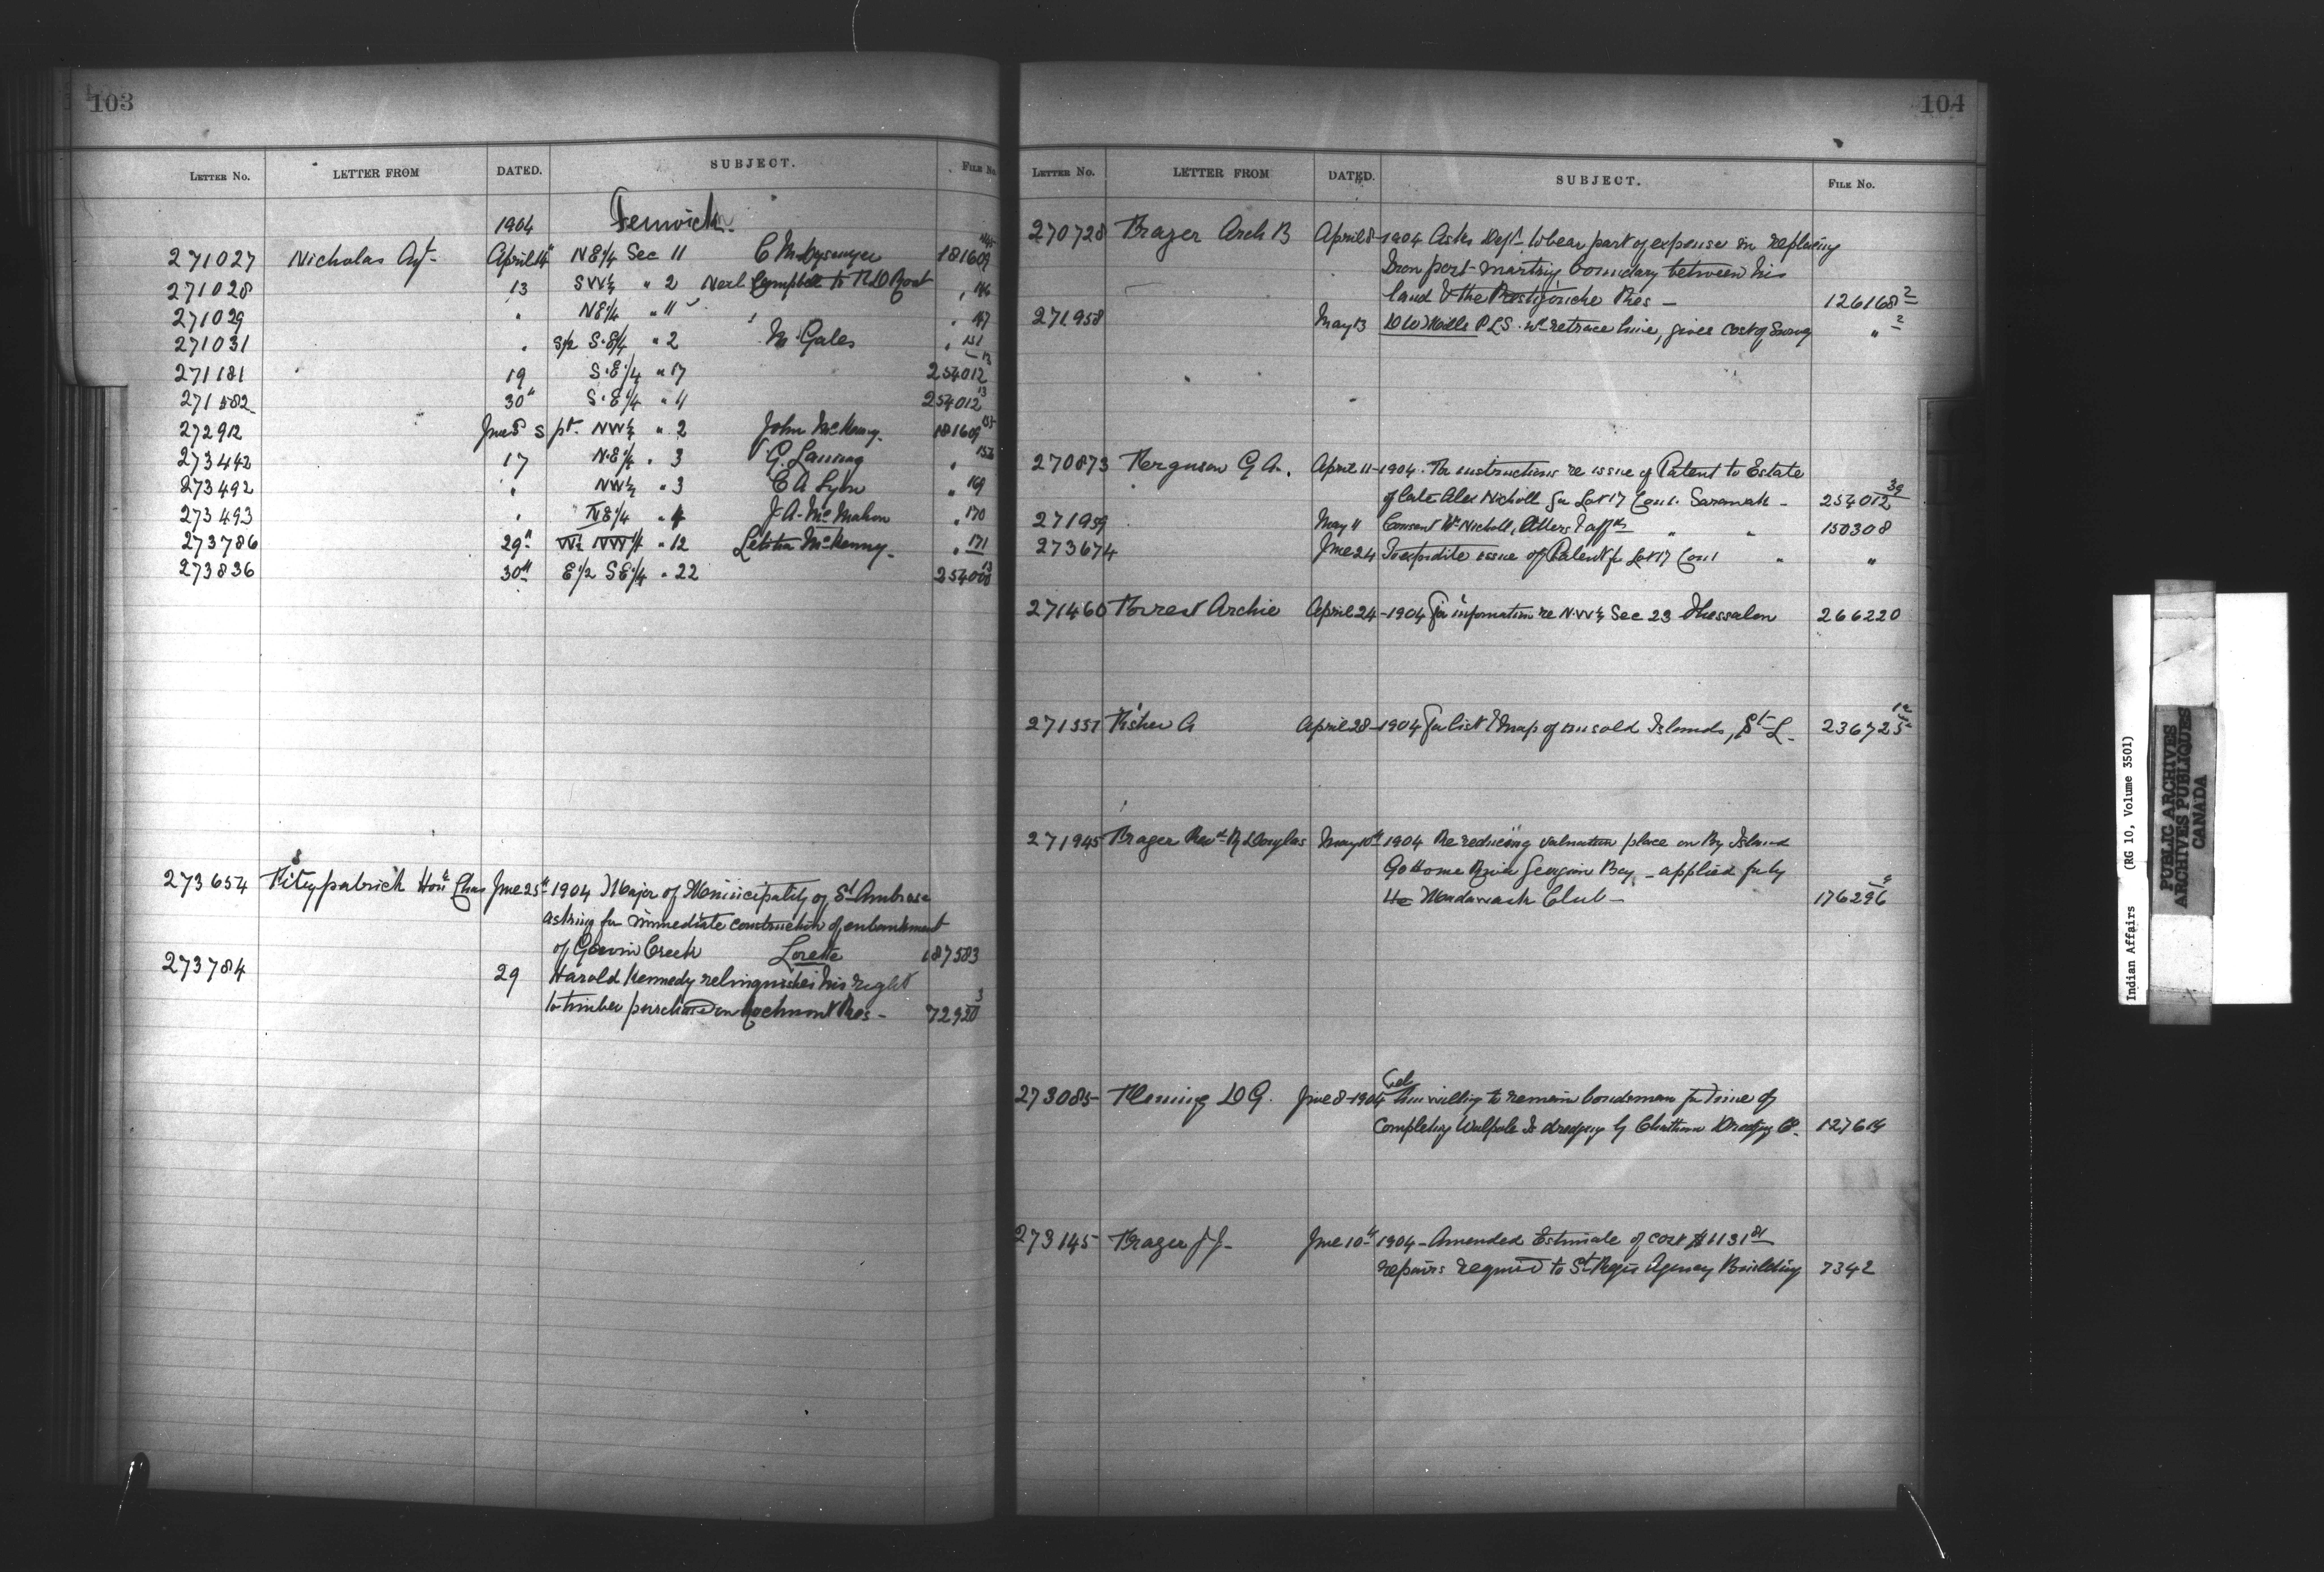 103
LETTER NO. LETTER FROM DATED. SUBJECT. FILE No.
1904 Fenwick.
271027 Nicholas Agt April 14 NE 1/4 Sec 11 181609
271028 13 SW 1/4 " 2 Neil Campbell to R D " 146
271029 " NE 1/4 " 11 " " 147
271031 " S 1/2 S.E 1/4 " 2 M. Gales " 151
271181 19 S.E 1/4 " 17 254012 13
271582 30 S.E 1/4 " 4 254012 13
272912 June 8 S pt. NW 1/4 " 2 John McKenny. 181609 155
273442 17 N.E 1/4 " 3 G. Lanning "
273492 " NW 1/4 " 3 E A Lyon " 169
273493 " NE 1/4 " 4 J. A. McMahon " 170
273786 29 NW 1/4 " 12 Letitia McKenny. " 171
273836 30 E 1/2 SE 1/4 " 22 13
273654 Fitzpatrick Hon Chas June 25 1904 Major of Municipality of St Ambrose
asking for immediate construction of embankment
of Creek Lorette 187583
273784 29 Harold Kennedy relinquishes his right
to timber purchased on Rocmont Res - 72920 3
104
LETTER NO. LETTER FROM DATED. SUBJECT. FILE No.
270728 Frazer Arch B April 8 - 1904 Asks Dept to bear part of expense in replacing
Iron post marking boundary between his
land & the Restigouche Res - 126168 2
271958 May 13 D W Mills P L S. re retrace line, gives cost of Survey " 2
270873 Ferguson G A. April 11 - 1904. For instructions re issue of Patent to Estate
of late Alex Nicholl for Lot 17 Con 1. Sarawak - 254012 39
271959 May 11 Consent Wm Nicholl, & affts " " 150308
273674 June 24 To expedite issue of Patent for Lot 17 Con 1 " "
271460 Forrest Archie April 24 - 1904 For information re N.W 1/4 Sec 23 Thessalon 266220
271551 Fisher A April 28 - 1904 For list & Map of unsold Islands, St L. 236725
271945 Frazer Revd R Douglas May 10th 1904 Re reducing valuation place on By Island
Go Home River Georgian Bay - applied for by
the Madawask Club - 176296
273085 Fleming D G. June 8 - 1904 Tel Am willing to remain bondsman for time of
completing Walpole Is dredging by Chatham Dredging Co. 127614
273145 Frazer J J - June 10th 1904 - Amended Estimate of cost $1131
repairs required to St Regis Agency Building 7342
Indian Affairs (RG 10, Volume 3501)
PUBLIC ARCHIVES
ARCHIVES PUBLIQUES
CANADA